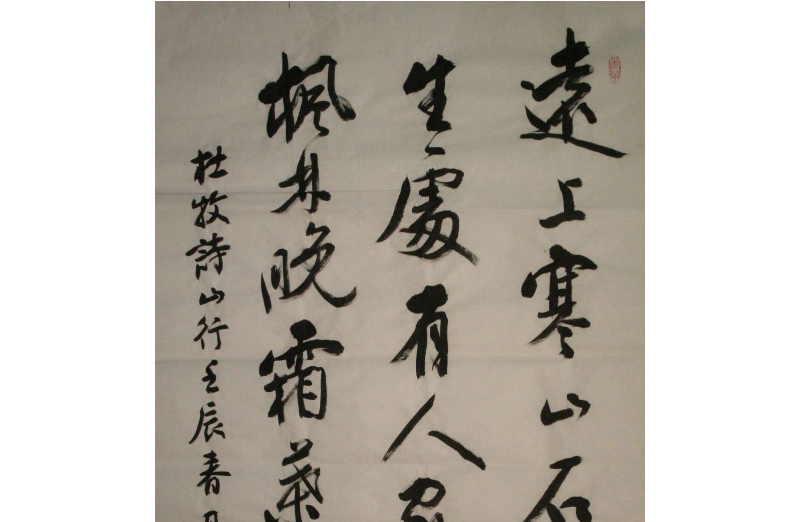 遠上寒山石
生處有人家
楓林晚霜葉
杜牧詩山行壬辰春月